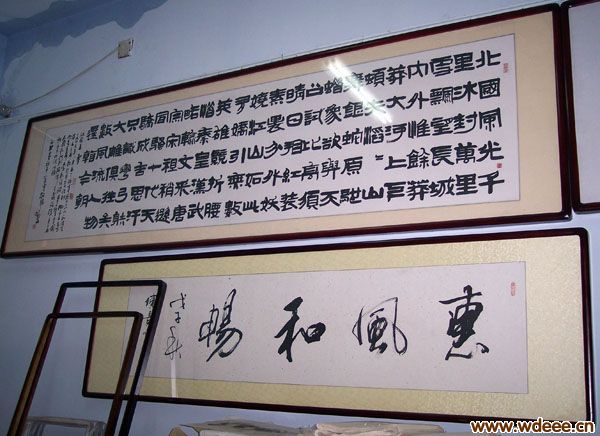 北國風光千
里冰封萬里
雪飄望長城
内外惟餘莽
莽大河上下
頓失滔滔山
舞銀蛇原馳
蠟象欲與天
公試比高須
晴日看紅裝
素裹分外妖
嬈江山如此
多嬌引無數
英雄競折腰
惜秦皇漢武
略輸文采唐
宗宋祖稍遜
風騷一代天
驕成吉思汗
只識彎弓射
大雕俱往矣
數風流人物
還看今朝
惠風和暢
戊子秋
www.wdeee.cn